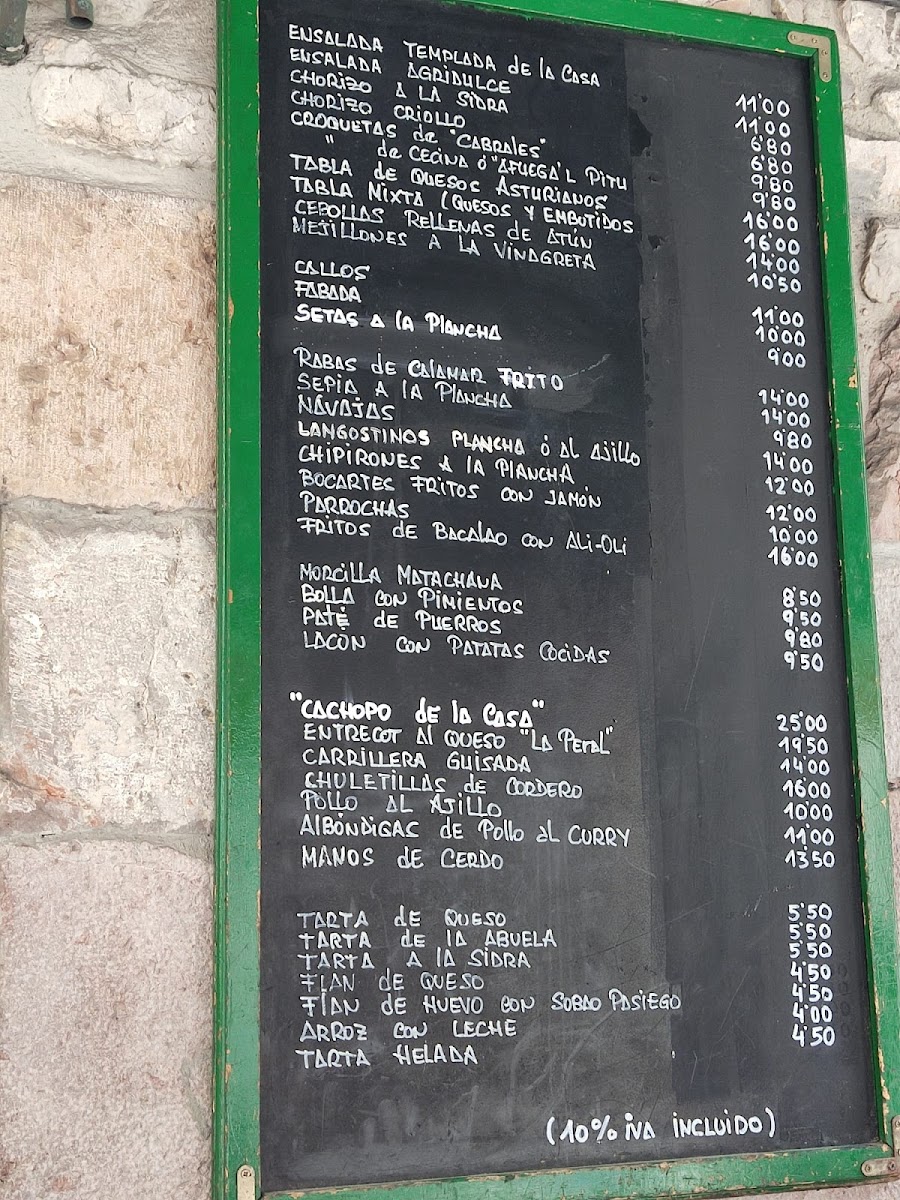 ENSALADA TEMPLADA de la CASA 11'00
ENSALADA AGRIDULCE 11'00
CHORIZO A LA SIDRA 6'80
CHORIZO CRIOLLO 6'80
CROQUETAS de "CABRALES" 9'80
" de CECINA ó "AFUEGA'L PITU 9'80
TABLA de QUESOS ASTURIANOS 16'00
TABLA MIXTA (QUESOS Y EMBUTIDOS 16'00
CEBOLLAS RELLENAS DE ATÚN 14'00
MEJILLONES A LA VINAGRETA 10'50
CALLOS 11'00
FABADA 10'00
SETAS A la PlANCHA 9'00
RABAS de CALAMAR FRITO 14'00
SEPIA A la PlANCHA 14'00
NAVAJAS 9'80
LANGOSTINOS PLANCHA ó AL AJILLO 14'00
CHIPIRONES A la PlANCHA 12'00
BOCARTES FRITOS CON JAMÓN 12'00
PARROCHAS 10'00
FRITOS DE BACALAO CON ALI-OLI 16'00
MORCILLA MATACHANA 8'50
BOLLA CON PIMIENTOS 9'50
PATÉ DE PUERROS 9'80
LACÓN CON PATATAS COCIDAS 9'50
"CACHOPO de la CASA" 25'00
ENTRECOT Al QUESO "LA PERAL" 19'50
CARRILLERA GUISADA 14'00
CHULETILLAS de CORDERO 16'00
POLLO AL AJILLO 10'00
AlBÓNDIGAS DE Pollo al CURRY 11'00
MANOS DE CERDO 13'50
TARTA de QUESO 5'50
TARTA de la ABUELA 5'50
TARTA A la SIDRA 5'50
FLAN DE QUESO 4'50
FlAN DE HUEVO CON SOBAO PASIEGO 4'50
ARROZ CON LECHE 4'00
TARTA HELADA 4'50
(10% iva INCLUIDO)